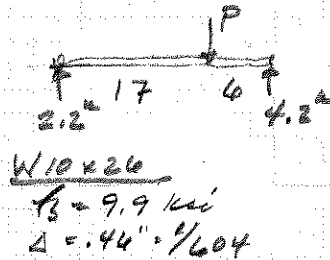 P
17 6
2.2ᵏ 4.2ᵏ
W10x26
fb = 9.9 ksi
Δ = .46" = l/604